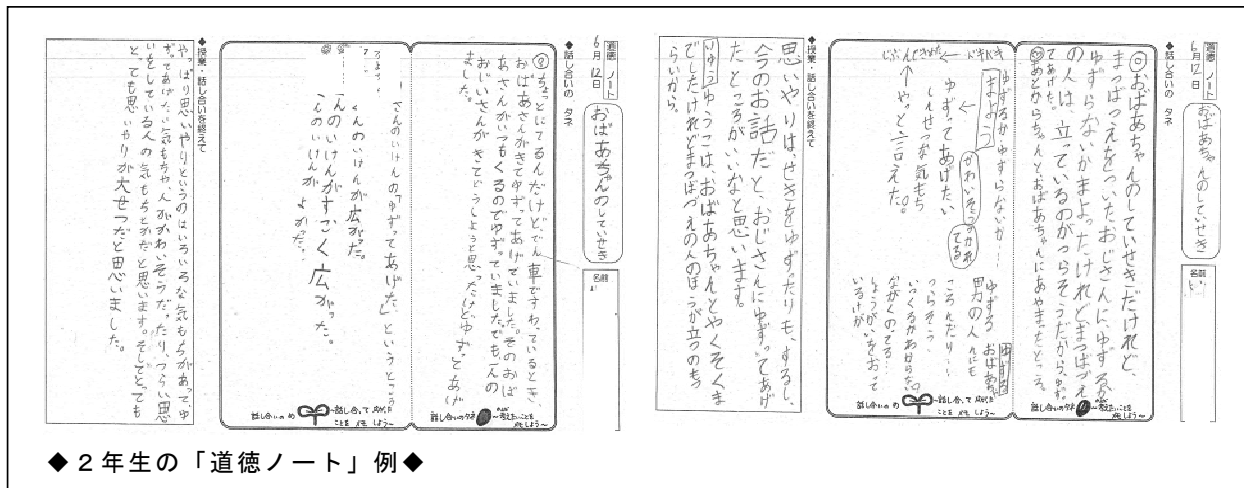 道徳 ノート
6月12日
おばあちゃんのしていせき
名前
◆話し合いの タネ
おばあちゃんのしていせきだけれど、
まつばづえをついたおじさんに、ゆずるか
ゆずらないかまよったけれどまつばづえ
の人は、立っているのがつらそうだからゆずっ
てあげた。
あとからちゃんとおばあちゃんにあやまったところ。
ゆずるかゆずらないか…
まよう
ドキドキ
かわいそう
ゆずってあげたい
しんせつな気もち
やっと言えた。
ゆずる
おばあちゃん
ゆずろ
男の人
ころんだり…
つらそう
ながくのってる…
話し合いのタネ
～考えたいことを
メモしよう～
話し合いの め
～話し合って
ことを メモ しよう～
◆授業・話し合いを終えて
思いやりは、せきをゆずったりも、するし、
今のお話だと、おじさんにゆずってあげ
たところがいいなと思います。
りゆう ゆうこは、おばあちゃんとやくそくま
でしたけれどまつばづえの人のほうが立つのもつ
らいから。
道徳 ノート
6月12日
おばあちゃんのしていせき
名前
◆話し合いの タネ
ちょっとにてるんだけど、でん車ですわっているとき
おばあさんがきてゆずってあげていました。そのおば
あさんがいつもくるのでゆずっていました。でも、一人の
おじいさんがきてどうしようと思ったけどゆずってあげ
ました。
さんのいけんの「ゆずってあげた」というところ
くんのいけんが広がった。
んのいけんがすごく広がった。
のいけんが よかった。
話し合いのタネ
～考えたいことを
メモしよう～
話し合いの め
～話し合って
ことを メモ しよう～
◆授業・話し合いを終えて
やっぱり思いやりというのはいろいろな気もちがあってゆ
ずってあげたい気もちや人がかわいそうだったり、つらい思
いをしている人の気もちとかだと思います。そしてとっても
とっても思いやりが大せつだと思いました。
◆２年生の「道徳ノート」例◆